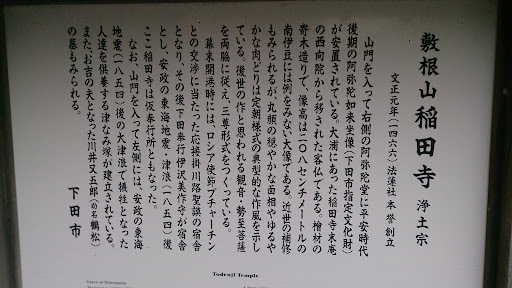 敷根山稲田寺 浄土宗
文正元年(一四六六)法蓮社本誉創立
山門を入って右側の阿弥陀堂に平安時代
後期の阿弥陀如来坐像(下田市指定文化財)
が安置されている。大浦にあった稲田寺末庵
の西向院から移された客仏である。檜材の
寄木造りで、像高は二〇八センチメートルの
南伊豆には例をみない大像である。近世の補修
もみられるが、丸顔の穏やかな面相やゆるや
かな肉どりは定朝様式の典型的な作風を示し
ている。後世の作と思われる観音・勢至菩薩
を両脇に従え、三尊形式をつくっている。
幕末開港時には、ロシア使節プチャーチン
との交渉に当たった応接掛川路聖謨の宿舎
となり、その後下田奉行伊沢美作守が宿舎
とし、安政の東海地震・津浪(一八五四)後
ここ稲田寺は仮奉行所ともなった。
なお、山門を入って左側には、安政の東海
地震(一八五四)後の大津浪で犠牲となった
人達を供養する津なみ塚が建立されている。
また、お吉の夫となった川井又五郎(幼名鶴松)
の墓もみられる。
下田市
Todenji Temple